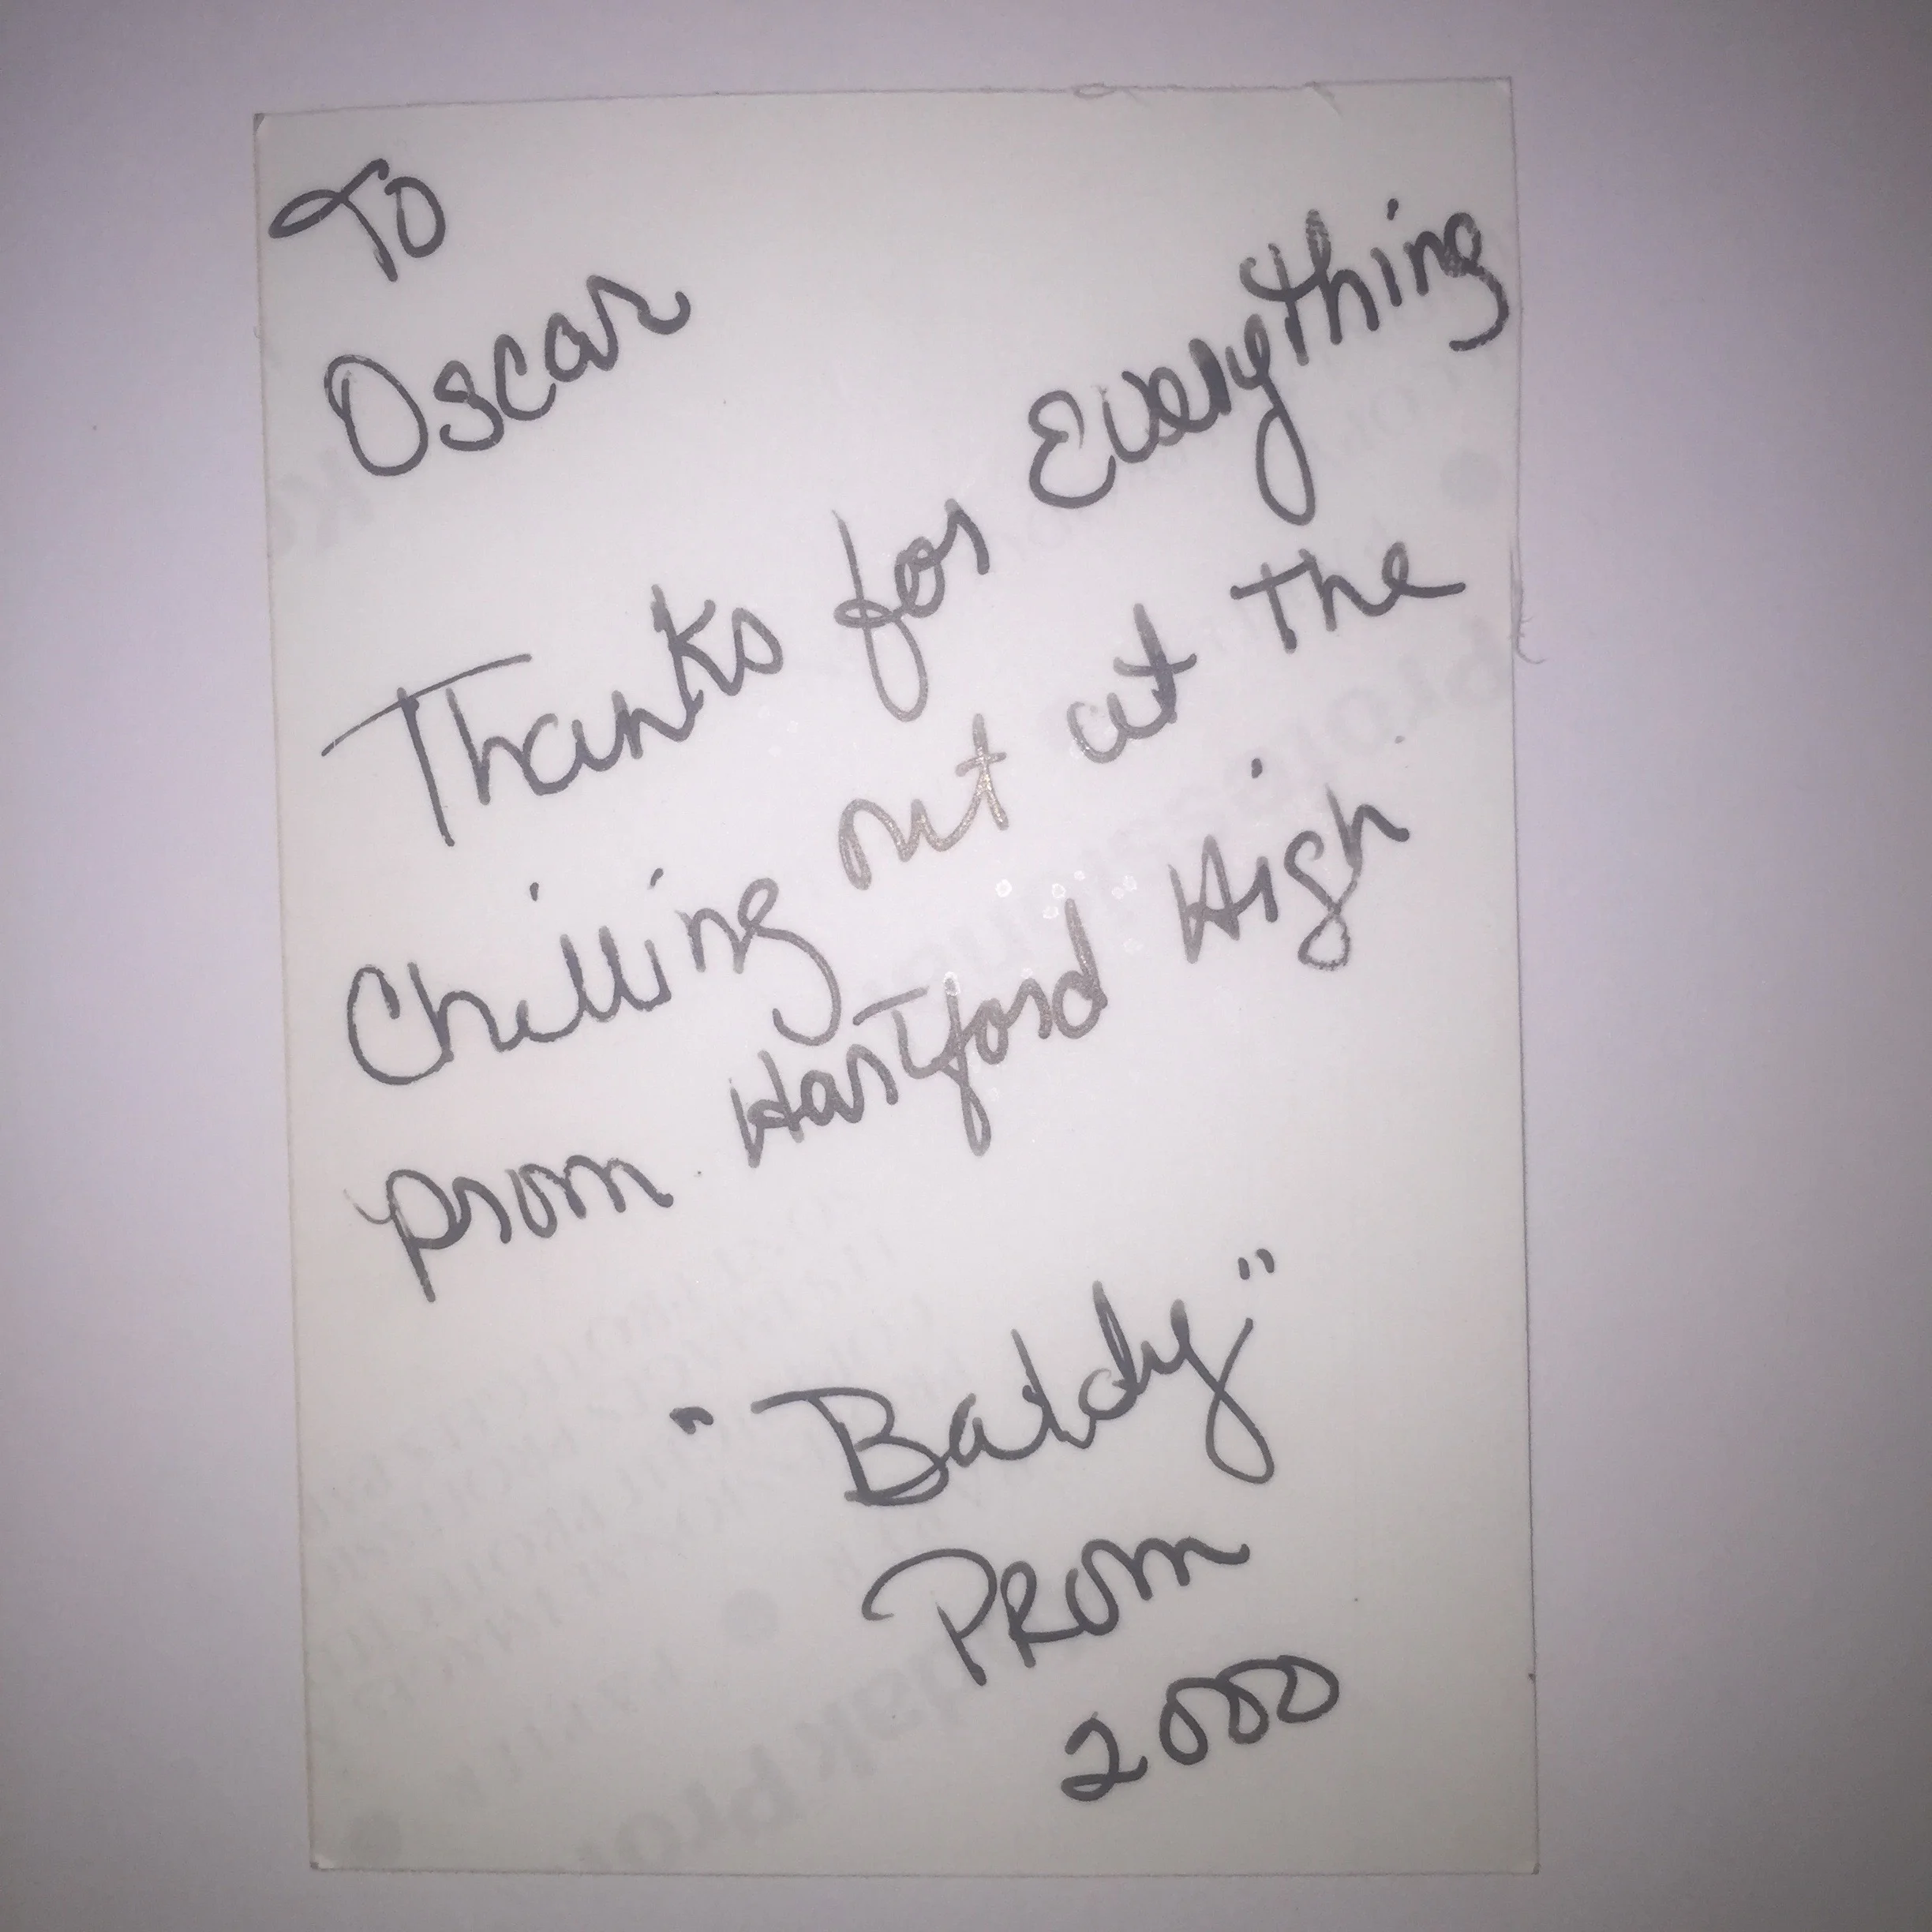 To
Oscar
Thanks for Everything
Chilling out at the
prom Hartford High
"Baldy"
PROM
2000